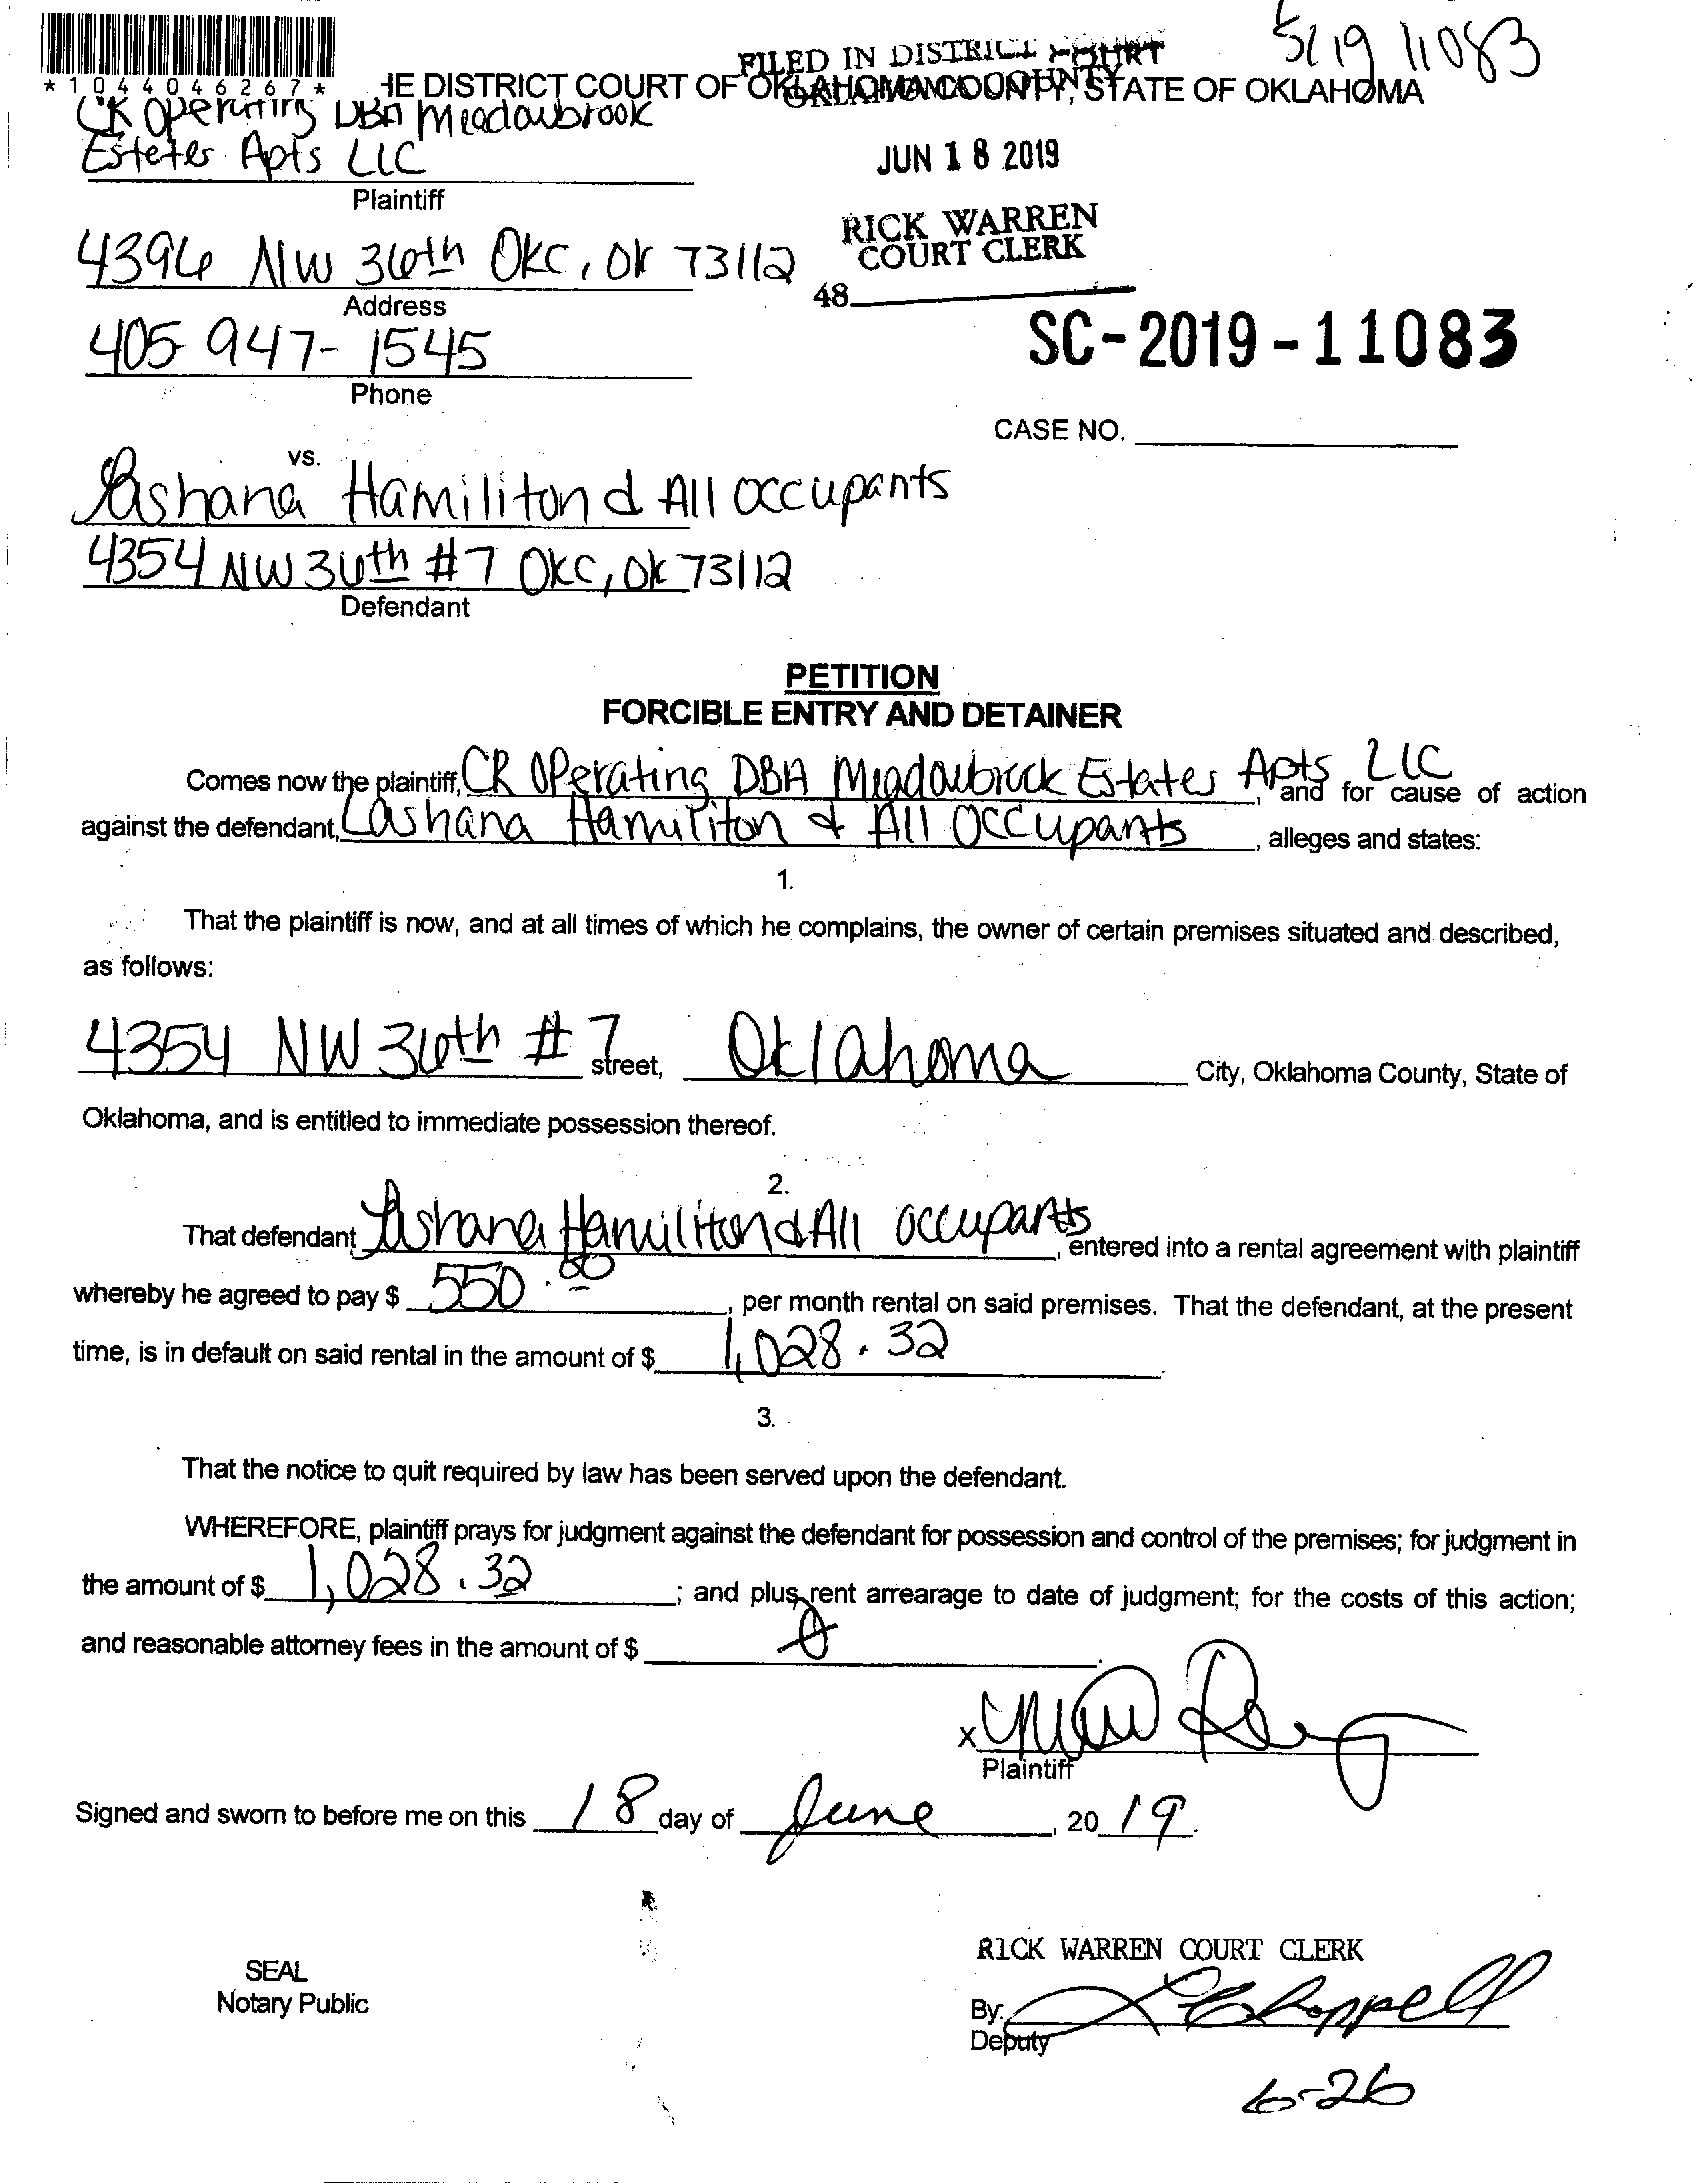 5c 19 11083
FILED IN DISTRICT COURT
OKLAHOMA COUNTY
*1044046267* HE DISTRICT COURT OF OKLAHOMA COUNTY, STATE OF OKLAHOMA
CR Operating DBA Meadowbrook
Estates Apts LLC
Plaintiff
JUN 18 2019
RICK WARREN
COURT CLERK
48
4396 NW 36th OKC, OK 73112
Address
405 947-1545
Phone
SC-2019-11083
CASE NO.
vs.
Lashana Hamiliton & All occupants
4354 NW 36th #7 OKC, OK 73112
Defendant
PETITION
FORCIBLE ENTRY AND DETAINER
Comes now the plaintiff, CR Operating DBA Meadowbrook Estates Apts LLC, and for cause of action
against the defendant, Lashana Hamiliton & All Occupants, alleges and states:
1.
That the plaintiff is now, and at all times of which he complains, the owner of certain premises situated and described,
as follows:
4354 NW 36th #7 street, Oklahoma City, Oklahoma County, State of
Oklahoma, and is entitled to immediate possession thereof.
2.
That defendant Lashana Hamiliton & All occupants, entered into a rental agreement with plaintiff
whereby he agreed to pay $ 550.00, per month rental on said premises. That the defendant, at the present
time, is in default on said rental in the amount of $ 1,028.32
3.
That the notice to quit required by law has been served upon the defendant.
WHEREFORE, plaintiff prays for judgment against the defendant for possession and control of the premises; for judgment in
the amount of $ 1,028.32; and plus rent arrearage to date of judgment; for the costs of this action;
and reasonable attorney fees in the amount of $ 0.
x
Plaintiff
Signed and sworn to before me on this 18 day of June, 2019.
SEAL
Notary Public
RICK WARREN COURT CLERK
By: Chappell
Deputy
6-26